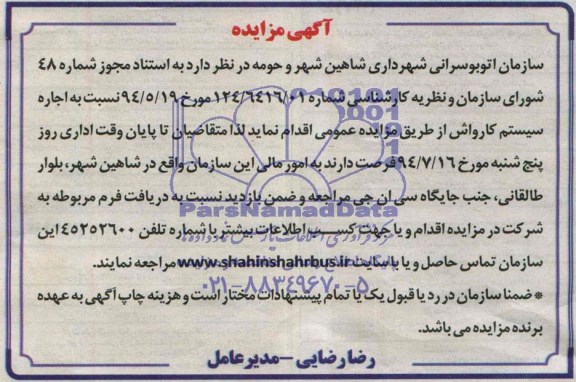 آگهی مزایده
سازمان اتوبوسرانی شهرداری شاهین شهر و حومه در نظر دارد به استناد مجوز شماره ۴۸
شورای سازمان و نظریه کارشناسی شماره ۱۲۴/۶۴۱۶/۰۱ مورخ ۹۴/۵/۱۹ نسبت به اجاره
سیستم کارواش از طریق مزایده عمومی اقدام نماید لذا متقاضیان تا پایان وقت اداری روز
پنج شنبه مورخ ۹۴/۷/۱۶ فرصت دارند به امور مالی این سازمان واقع در شاهین شهر، بلوار
طالقانی، جنب جایگاه سی ان جی مراجعه و ضمن بازدید نسبت به دریافت فرم مربوطه به
ParsNamadData
شرکت در مزایده اقدام و یا جهت کسب اطلاعات بیشتر با شماره تلفن ۴۵۲۵۲۶۰۰ این
سازمان تماس حاصل و یا باسایت www.shahinshahrbus.ir مراجعه نمایند.
۰۲۱-۸۸۳۴۹۶۷۰-۵
*ضمنا سازمان در رد یا قبول یک یا تمام پیشنهادات مختار است و هزینه چاپ آگهی به عهده
برنده مزایده می باشد.
رضا رضایی - مدیر عامل